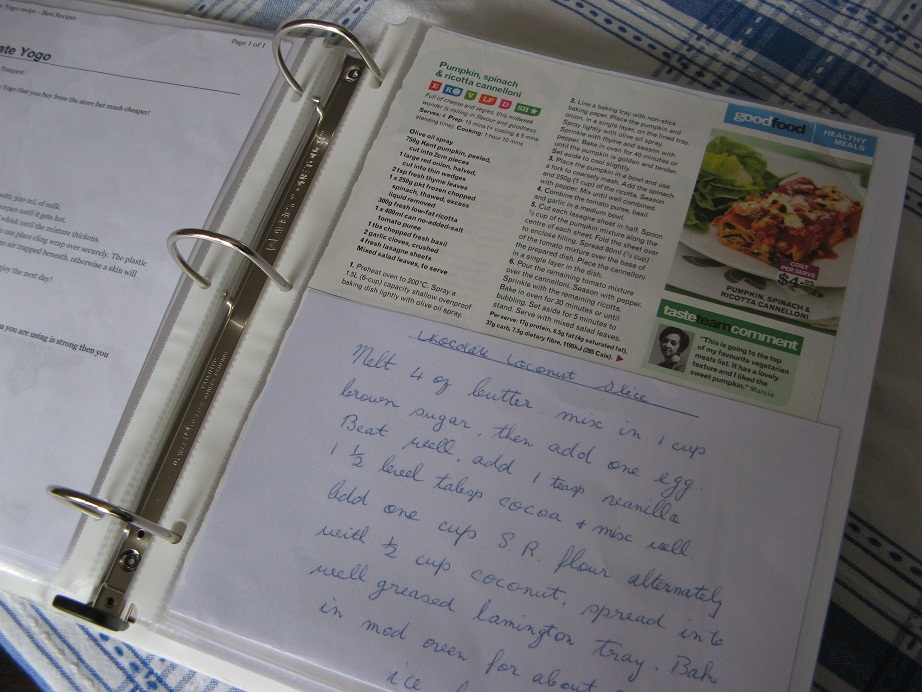 Yogo recipe - Best Recipes
Page 1 of 1
ate Yogo
Tempest
Yogo that you buy from the store but much cheaper!
with 300 mL of milk.
until it gets hot.
whisk until the mixture thickens.
can place cling wrap over securely. The plastic
no air trapped beneath, otherwise a skin will
enjoy the next day!
you are using is strong then you
Pumpkin, spinach
& ricotta cannelloni
Full of cheese and vegies, this midweek
wonder is rolling in flavour and goodness.
Serves: 4 Prep: 15 mins (+ cooling & 5 mins
standing time) Cooking: 1 hour 10 mins
Olive oil spray
750g Kent pumpkin, peeled,
cut into 2cm pieces
1 large red onion, halved,
cut into thin wedges
2 tsp fresh thyme leaves
1 x 250g pkt frozen chopped
spinach, thawed, excess
liquid removed
300g fresh low-fat ricotta
1 x 400ml can no-added-salt
tomato puree
1 tbs chopped fresh basil
2 garlic cloves, crushed
4 fresh lasagne sheets
Mixed salad leaves, to serve
1. Preheat oven to 200°C. Spray a
1.5L (6-cup) capacity shallow ovenproof
baking dish lightly with olive oil spray.
2. Line a baking tray with non-stick
baking paper. Place the pumpkin and
onion, in a single layer, on the lined tray.
Spray lightly with olive oil spray.
Sprinkle with thyme and season with
pepper. Bake in oven for 40 minutes or
until the pumpkin is golden and tender.
Set aside to cool slightly.
3. Place the pumpkin in a bowl and use
a fork to coarsely mash. Add the spinach
and 250g (1 cup) of the ricotta. Season
with pepper. Mix until well combined.
4. Combine the tomato puree, basil
and garlic in a medium bowl.
5. Cut each lasagne sheet in half. Spoon
⅓ cup of the pumpkin mixture along the
centre of each sheet. Fold the sheet over
to enclose filling. Spread 80ml (⅓ cup)
of the tomato mixture over the base of
the prepared dish. Place the cannelloni
in a single layer in the dish.
6. Pour the remaining tomato mixture
over the cannelloni. Season with pepper.
Sprinkle with the remaining ricotta.
Bake in oven for 30 minutes or until
bubbling. Set aside for 5 minutes to
stand. Serve with mixed salad leaves.
Per serve: 17g protein, 6.5g fat (4g saturated fat),
37g carb, 7.5g dietary fibre, 1195kJ (285 Cals).
goodfood
HEALTHY
MEALS
COST
PER SERVE
PUMPKIN, SPINACH &
RICOTTA CANNELLONI
tasteteamcomment
"This is going to the top
of my favourite vegetarian
meals list. It has a lovely
texture and I liked the
sweet pumpkin." Marcia
Chocolate Coconut Slice
Melt 4 oz butter mix in 1 cup
brown sugar, then add one egg.
Beat well, add 1 teasp vanilla
1 ½ level tabsp cocoa & mix well
Add one cup S.R. flour alternately
with ½ cup coconut, spread into
well greased lamington tray. Bake
in mod oven for about
ice